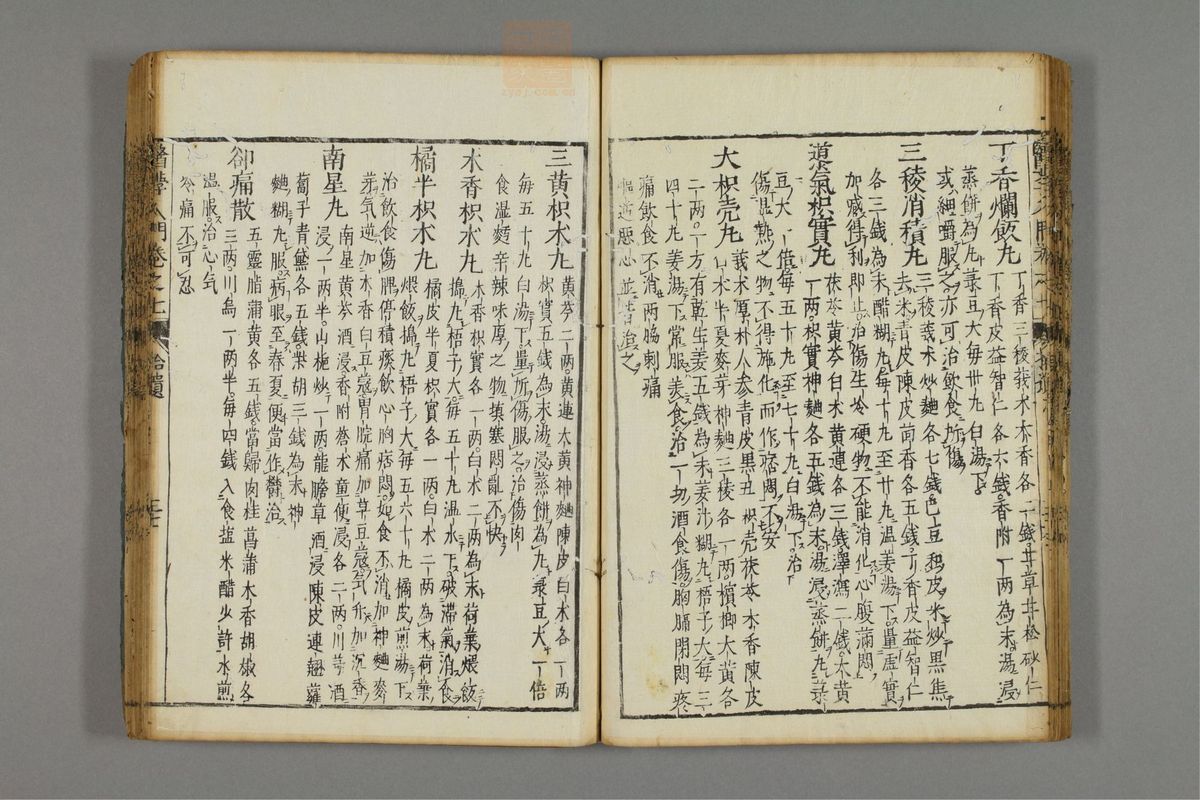 丁香爛飯丸 丁香三稜莪朮木香各一錢甘草甘松砂仁
丁香皮益智仁各六錢香附一兩為末湯浸
蒸餅為丸菉豆大每卅丸白湯下
或細嚼服之亦可治飲食所傷
三稜消積丸 三稜莪朮炒麯各七錢巴豆和皮米炒黑焦
去米青皮陳皮茴香各五錢丁香皮益智仁
各三錢為末醋糊丸每十丸至卄丸温姜湯下量虛實
加减得利即止治傷生冷硬物不能消化心腹滿悶
導氣枳實丸 茯苓黃芩白朮黃連各三錢澤瀉二錢大黃
一兩枳實神麯各五錢為末湯浸蒸餅丸菉
豆大一倍每五十丸至七十丸白湯下治
傷濕熱之物不得施化而作痞悶不安
大枳壳丸 莪朮厚朴人参青皮黑丑枳壳茯苓木香陳皮
白朮半夏麥芽神麯三稜各一兩檳榔大黃各
二兩一方有乾生姜五錢為末姜汁糊丸梧子大每三
四十丸姜湯下常服美食治一切酒食傷胸膈閉悶疼
痛飲食不消兩脇刺痛
嘔逆惡心並皆治之
三黃枳朮丸 黃芩二兩黃連大黃神麯陳皮白朮各一兩
枳實五錢為末湯浸蒸餅為丸菉豆大一倍
每五十丸白湯下量所傷服之治傷肉
食濕麪辛辣味厚之物填塞悶亂不快
木香枳朮丸 木香枳實各一兩白朮二兩為末荷葉煨飯
搗丸梧子大每五十丸温水下破滯氣消食
橘半枳朮丸 橘皮半夏枳實各一兩白朮二兩為末荷葉
煨飯搗丸梧子大每五六十丸橘皮煎湯下
治飲食傷脾停積痰飲心胸痞悶如食不消加神麯麥
芽氣逆加木香白豆蔻胃脘痛加草豆蔻氣升加沉香
南星丸 南星黃芩酒浸香附蒼朮童便浸各二兩川芎酒
浸一兩半山梔炒一兩龍膽草酒浸陳皮連翹蘿
蔔子青黛各五錢柴胡三錢為末神
麯糊丸服病眼至春夏便當作鬱治
卻痛散 五靈脂蒲黃各五錢當歸肉桂菖蒲木香胡椒各
三兩川烏一兩半每四錢入食盐米醋少許水煎
温服治心气
冷痛不可忍
醫學入門卷之七 拾遺